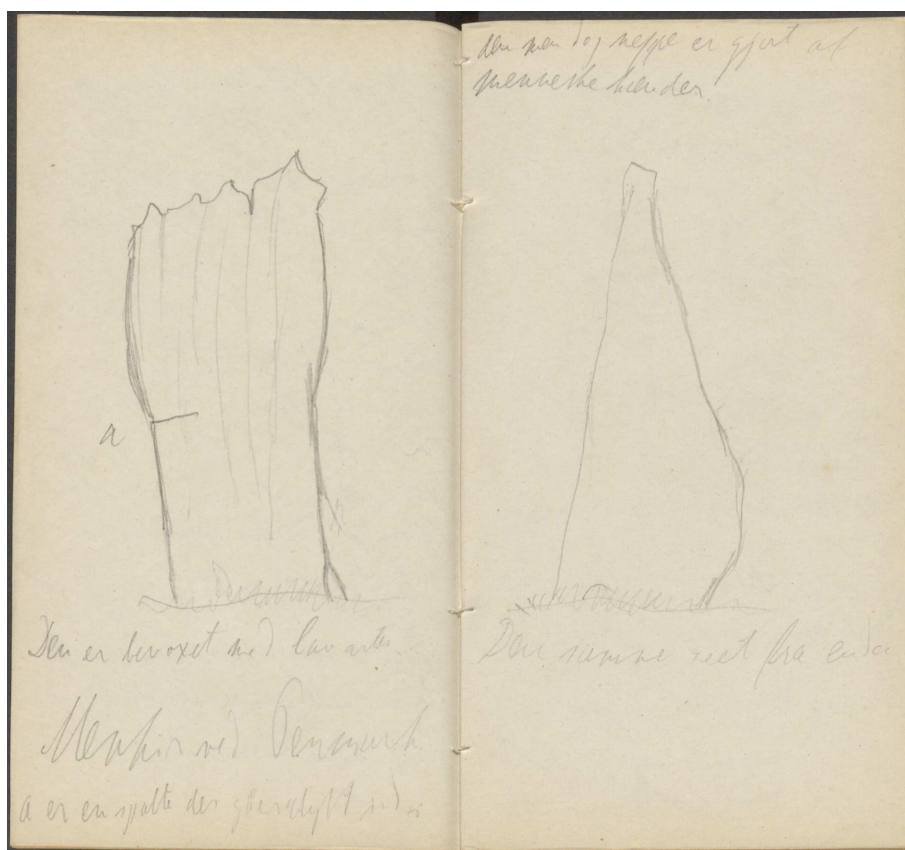 a
Den er bevoxet med lavarter.
Menhir ved Penmarch
a er en spalte der gåer dybt ind i
den men dog neppe er gjort af
menneske hænder.
Den samme seet fra enden